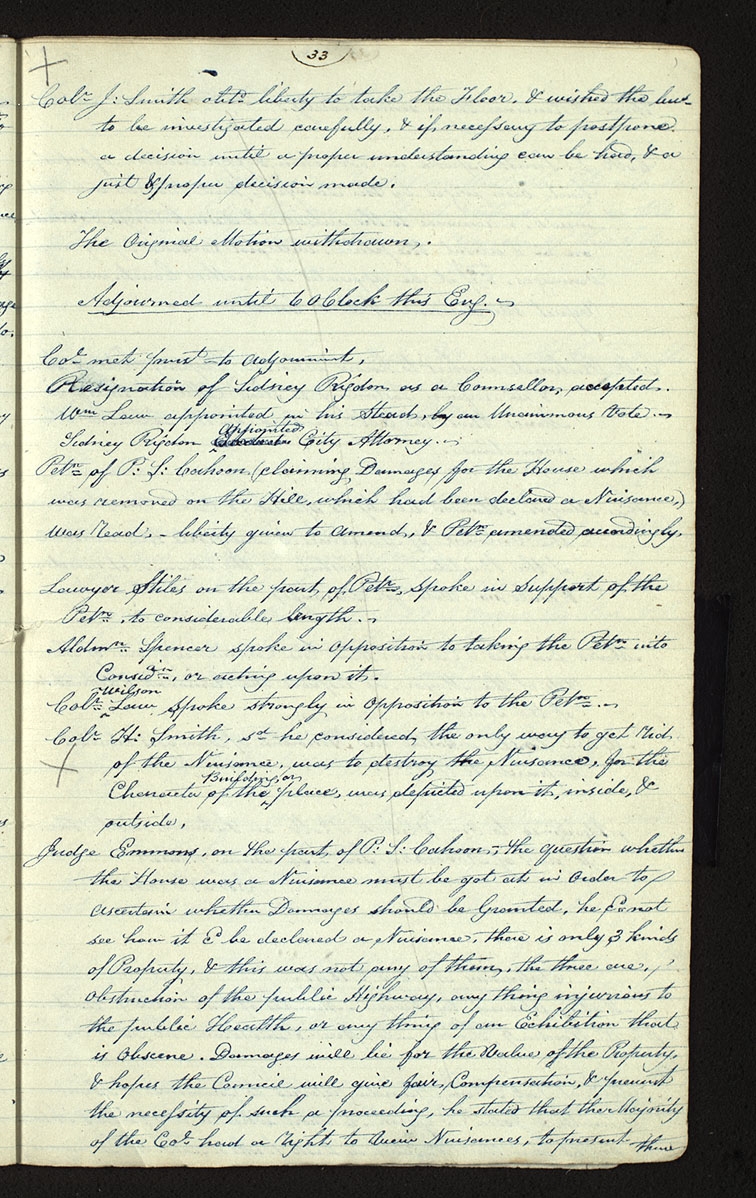 33
Colr. J: Smith obtd. liberty to take the Floor. & wished the law
to be investigated carefully, & if, necessary to postpone
a decision until a proper understanding can be had, & a
just & proper decision made.
The Original Motion withdrawn.
Adjourned until 6 oClock this Evg.
Col. met purst. to adjournint,
Resignation of Sidney Rigdon as a Counsellor, accepted.
Wm Law appointed in his Stead, by an Unanimous Vote.
Sidney Rigdon appointed City Attorney.
Petn. of P: S: Cahoon, (claiming Damages, for the House which
was removed on the Hill, which had been declared a Nuisance,)
was read, - liberty given to amend, & Petn. amended accordingly.
Lawyer Stiles on the part, of Petr., spoke in support of the
Petn. to considerable length.
Aldmn. Spencer spoke in opposition to taking the Petn. into
Considn., or acting upon it.
Colr. Wilson Law spoke strongly in Opposition to the Petn.
Colr. H: Smith, sd. he considered, the only way to get rid
of the Nuisance, was to destroy the Nuisance, for the
Character of the Building, or place, was depicted upon it, inside, &
outside.
Judge Emmons, on the part, of P: S: Cahoon, - the question whether
the House was a Nuisance must be got at in order to
ascertain whether Damages should be Granted, he Cd. not
see how it Cd. be declared a Nuisance, there is only 3 kinds
of Property, & this was not any of them, the three are,
Obstruction of the public Highway, any thing injurious to
the public Health, or any thing of an Exhibition that
is Obscene. Damages will lie for the Value of the Property,
& hopes the Council will give fair, Compensation, & prevent
the necessity of such a proceeding, he stated that the Majority
of the Col. had a right to view Nuisances, to present them